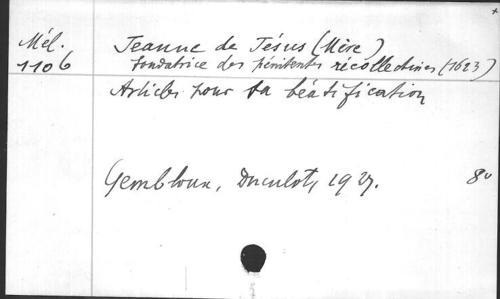 Mél.
1106
Jeanne de Jésus (Mère)
fondatrice des pénitentes récollectines (1623)
Articles pour sa béatification
Gembloux, Duculot, 1927.
8º